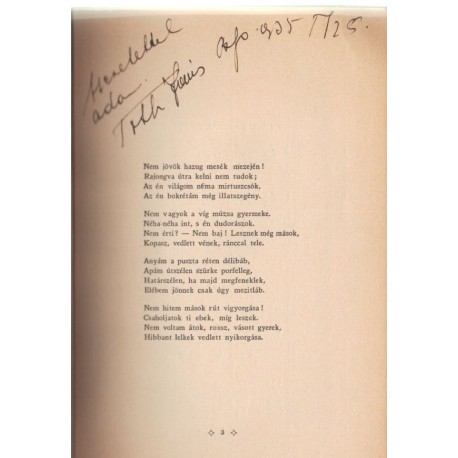 Szeretettel
ada
Tóth János Bp. 935 V/25.
Nem jövök hazug mesék mezején!
Rajongva útra kelni nem tudok;
Az én világom néma mirtuszcsók,
Az én bokrétám még illatszegény.
Nem vagyok a víg múzsa gyermeke.
Néha-néha int, s én dudorászok.
Nem érti? — Nem baj! Lesznek még mások,
Kopasz, vedlett vének, ránccal tele.
Anyám a puszta réten délibáb,
Apám útszélen szürke porfelleg,
Határszélen, ha majd megfeneklek,
Elébem jönnek csak úgy mezitláb.
Nem hitem mások rút vigyorgása!
Csaholjatok ti ebek, míg leszek.
Nem voltam átok, rossz, vásott gyerek,
Hibbant lelkek vedlett nyikorgása.
3